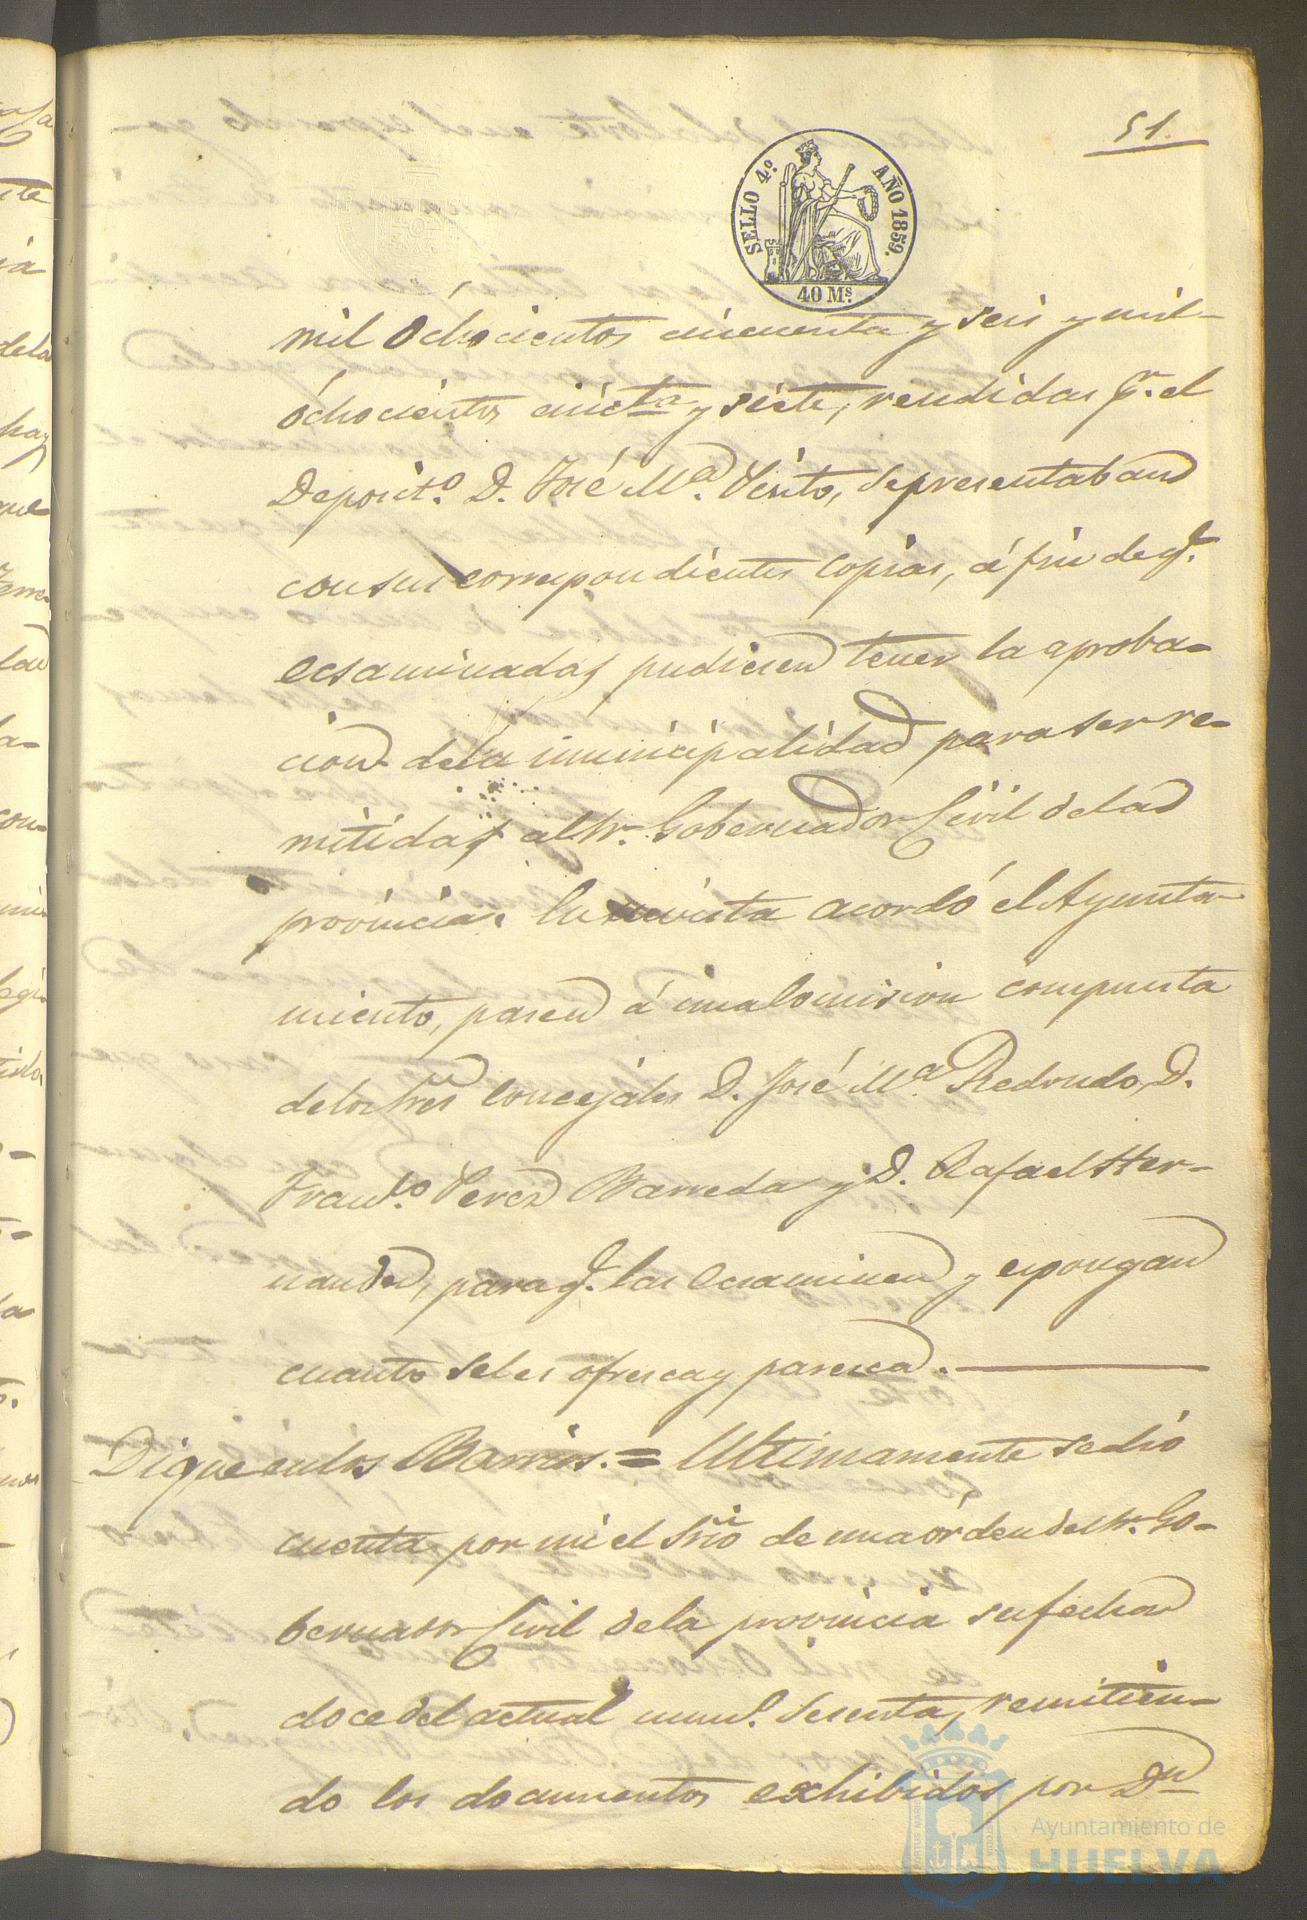 51.
SELLO 4º AÑO 1859.
40 Ms.
mil ochocientos cincuenta y seis y mil
ochocientos cincta y siete, rendidas pr. el
Deposito. D. José Ma. Pinto, se presentaban
con sus correspondientes copias, á fin de q.
ecsaminadas pudiesen tener la aproba-
cion de la municipalidad para ser re-
mitidas al Sr. Gobernador Civil de la
provincia. En su vista acordó el Ayunta-
miento, pasen á una Comision compuesta
de los Sres Concejales D. José Ma Redondo, D.
Franco. Perez Barreda y D. Rafael Her-
nandez, para q. las ecsaminen y espongan
cuanto se les ofresca y paresca.
Dique en los Barrios. = Ultimamente se dió
cuenta por mi el Srio de una órden del Sr. Go-
bernador Civil de la provincia su fecha
doce del actual num. sesenta, remitien-
do los documentos exhibidos por Dn
Ayuntamiento de
HUELVA